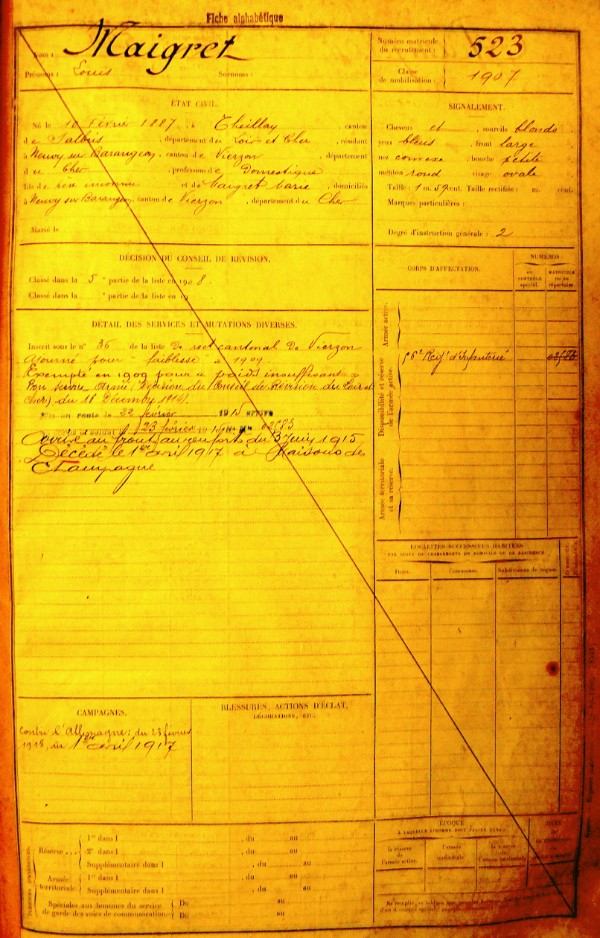 Fiche alphabétique
Nom : Maigret
Prénoms : Louis Surnoms :
Numéro matricule du recrutement : 523
Classe de mobilisation : 1907
ÉTAT CIVIL.
Né le 10 Février 1887, à Theillay, canton
de Salbris, département du Loir et Cher, résidant
à Neuvy sur Barangeon, canton de Vierzon, département
du Cher, profession de Domestique
fils de et de Maigret Marie, domiciliés
à Neuvy sur Barangeon, canton de Vierzon, département du Cher
Marié le
SIGNALEMENT.
Cheveux et , sourcils blonds
yeux bleus, front large
nez convexe, bouche petite
menton rond visage ovale
Taille : 1 m. 59 cent. Taille rectifiée : m. cent.
Marques particulières :
Degré d'instruction générale : 2
DÉCISION DU CONSEIL DE RÉVISION.
Classé dans la 5e partie de la liste en 1908.
Classé dans la partie de la liste en 19
CORPS D'AFFECTATION.
NUMÉROS
AU CONTRÔLE spécial.
MATRICULE ou au répertoire.
Armée active.
Disponibilité et réserve de l'armée active.
Armée territoriale et sa réserve.
Regt d'Infanterie
DÉTAIL DES SERVICES ET MUTATIONS DIVERSES.
Inscrit sous le n° 36 de la liste de rect cantonal de Vierzon
Ajourné pour "faiblesse" à 1909
Exempté en 1909 pour "poids insuffisant"
Bon service armé, Décision du Conseil de Révision du Loir et
Cher) du 18 Décembre 1914.
Mis en route le 22 février 1915 arrivé
23 février
Arrivé au front au renforts du 3 Juin 1915
Décédé le 1er avril 1917 à
Champagne
LOCALITÉS SUCCESSIVES HABITÉES
PAR SUITE DE CHANGEMENTS DE DOMICILE OU DE RÉSIDENCE.
Dates. Communes. Subdivisions de région.
CAMPAGNES.
Contre l'Allemagne : du 23 février
1915, au 1er avril 1917
BLESSURES, ACTIONS D'ÉCLAT,
DÉCORATIONS, ETC.
Réserve
1re dans l , du au
2e dans l , du au
Supplémentaire dans l , du au
Armée territoriale
1re dans l , du au
Supplémentaire dans l , du au
Spéciales aux hommes du service de garde des voies de communication
Du au
Du au
ÉPOQUE
À LAQUELLE L'HOMME DOIT PASSER DANS :
la réserve de l'armée active.
l'armée territoriale.
la réserve de l'armée territoriale.